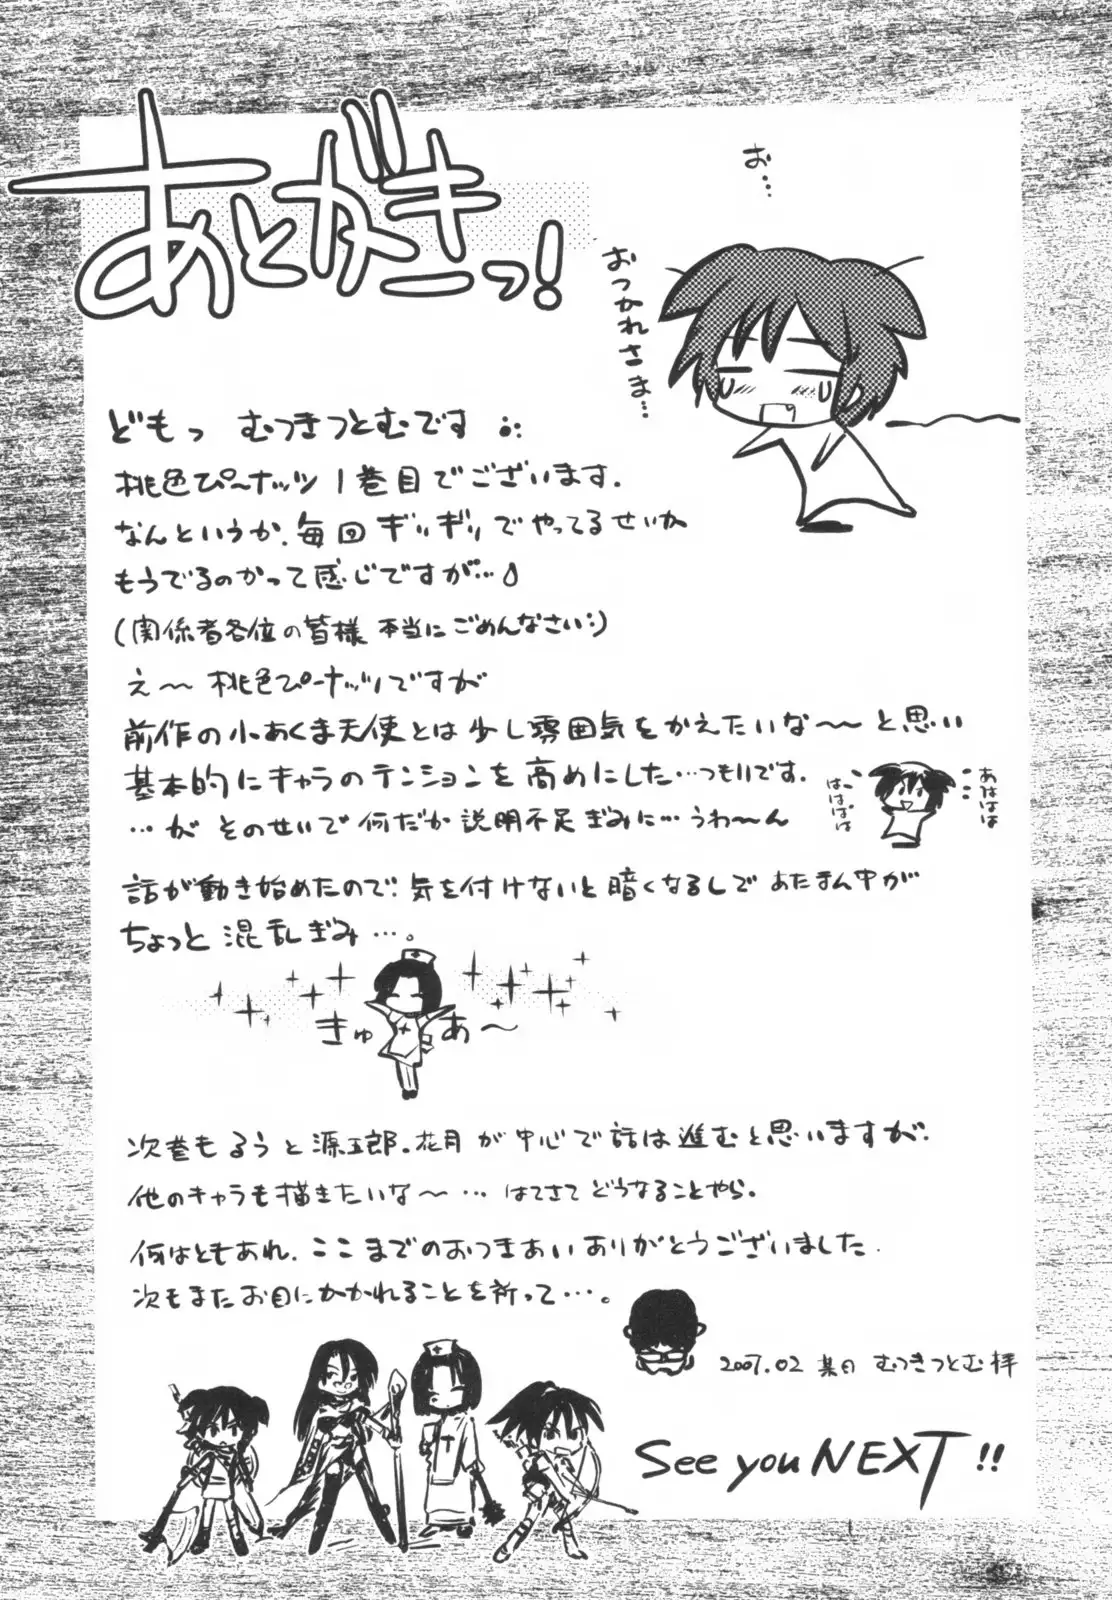 あとがきっ!
お…
おつかれさま…
どもっ むつきつとむです
桃色ぴーナッツ1巻目でございます.
なんというか.毎回ギリギリでやってるせいか
もうでるのかって感じですが…
(関係者各位の皆様 本当にごめんなさい)
え〜 桃色ぴーナッツですが
前作の小あくま天使とは少し雰囲気をかえたいな〜〜と思い
基本的にキャラのテンションを高めにした…つもりです.
…が そのせいで何だか説明不足ぎみに…うわ〜ん
あははは
はははは
話が動き始めたので.気を付けないと暗くなるしで あたまん中が
ちょっと混乱ぎみ…。
きゅあ〜
次巻もるうと源五郎.花月が中心で話は進むと思いますが.
他のキャラも描きたいな〜… はてさてどうなることやら。
何はともあれ.ここまでのおつきあいありがとうございました.
次もまたお目にかかれることを祈って…。
2007.02 某日 むつきつとむ拝
See you NEXT!!